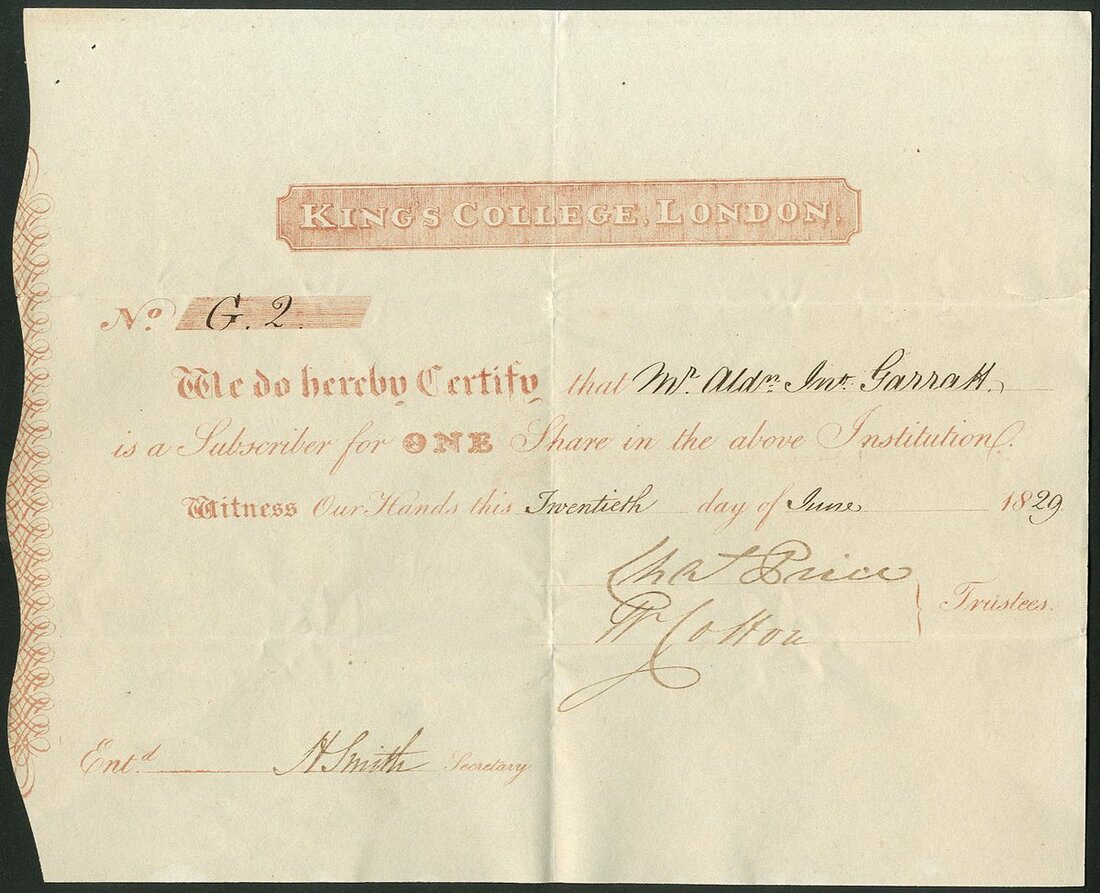 KINGS COLLEGE, LONDON.
No. G. 2.
We do hereby Certify that Mr. Aldn. Jno. Garratt
is a Subscriber for ONE Share in the above Institution.
Witness Our Hands this Twentieth day of June 1829
Chas Price
W Cotton
Trustees.
Entd. H Smith Secretary.